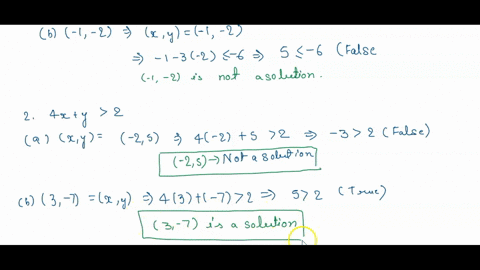 (b) (-1,-2) ⇒ (x,y) = (-1,-2)
⇒ -1-3(-2) ≤ -6 ⇒ 5 ≤ -6 (False
(-1,-2) is not a solution.
2. 4x+y > 2
(a) (x,y) = (-2,5) ⇒ 4(-2)+5 > 2 ⇒ -3 > 2 (False)
(-2,5) → Not a solution
(b) (3,-7) = (x,y) ⇒ 4(3)+(-7) > 2 ⇒ 5 > 2 (True)
(3,-7) is a solution